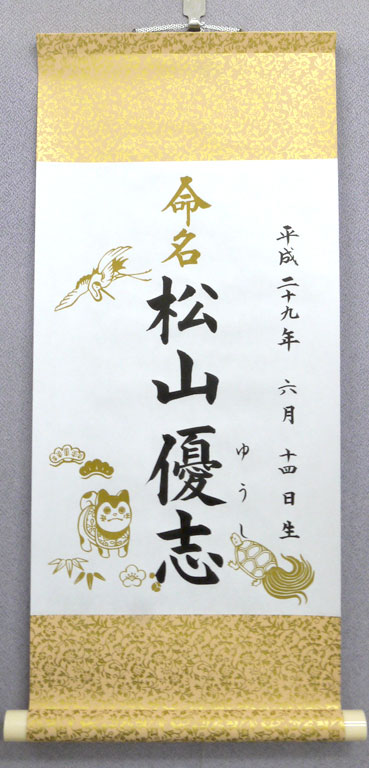 平成二十九年 六月 十四日生
命名
松山優志
ゆうし